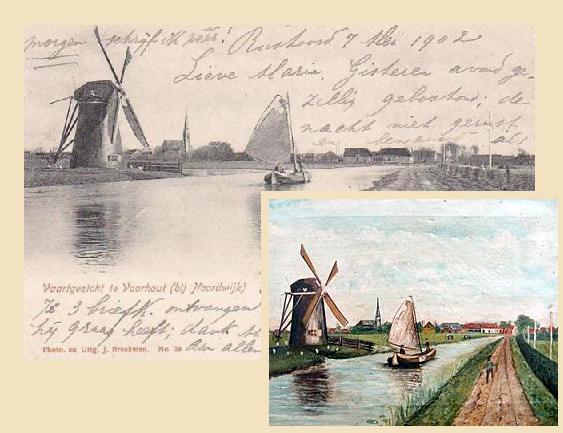 morgen schrijf ik meer! Rustoord 7 Mei 1902
Lieve Maria, Gisteren avond ge-
zellig gebostond; de
nacht niet gerust
en al
Vaartgezicht te Voorhout (bij Noordwijk)
72 3 briefk. ontvangen
hij graag heeft; dank
Aan allen
Photo. en Uitg. J. Braakman. No. 29